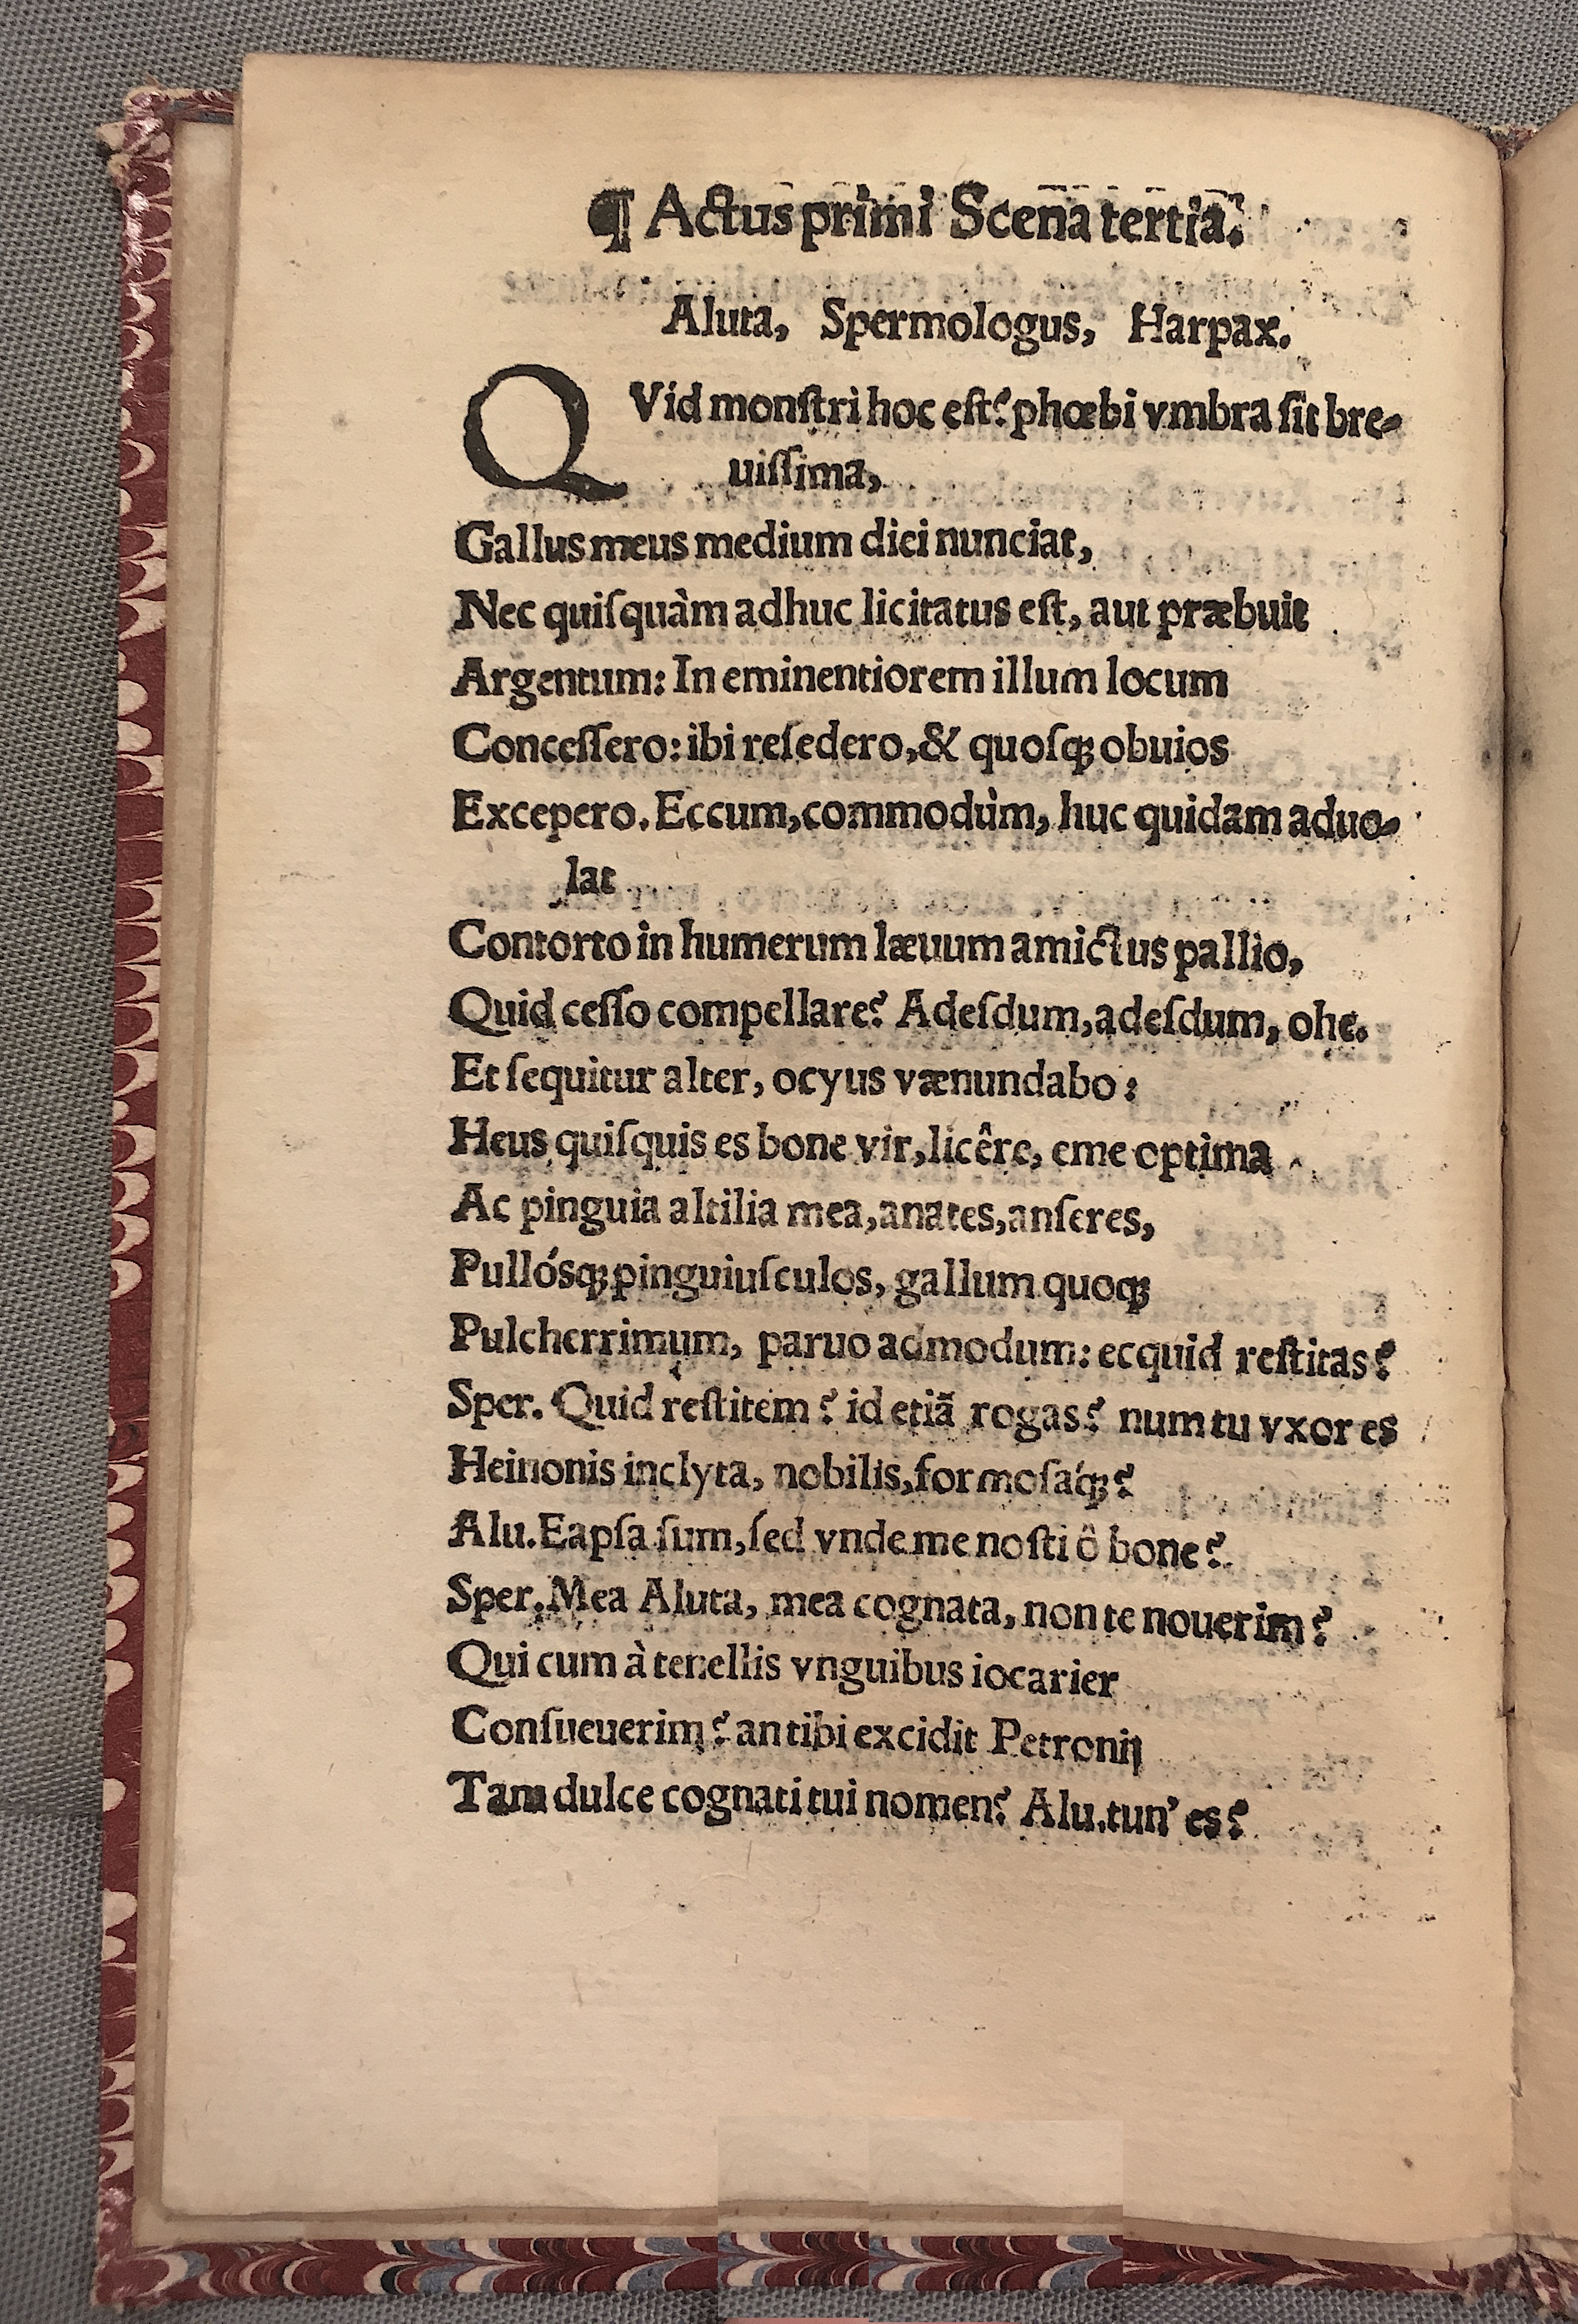 ¶ Actus primi Scena tertia.
Aluta, Spermologus, Harpax.
QVid monſtri hoc eſt? phœbi vmbra ſit bre-
uiſſima,
Gallus meus medium diei nunciat,
Nec quiſquàm adhuc licitatus eſt, aut præbuit
Argentum: In eminentiorem illum locum
Conceſſero: ibi reſedero, & quoſqꝫ obuios
Excepero. Eccum, commodùm, huc quidam aduo-
lat
Contorto in humerum læuum amictus pallio,
Quid ceſſo compellare? Adeſdum, adeſdum, ohe.
Et ſequitur alter, ocyus vænundabo:
Heus quiſquis es bone vir, licêre, eme optima
Ac pinguia altilia mea, anates, anſeres,
Pullósqꝫ pinguiuſculos, gallum quoqꝫ
Pulcherrimum, paruo admodum: ecquid reſtitas?
Sper. Quid reſtitem? id etiã rogas? num tu vxor es
Heinonis inclyta, nobilis, formoſáqꝫ?
Alu. Eapſa ſum, ſed vnde me noſti ô bone?
Sper. Mea Aluta, mea cognata, non te nouerim?
Qui cum à tenellis vnguibus iocarier
Conſueuerim? an tibi excidit Petronij
Tam dulce cognati tui nomen? Alu. tun' es?